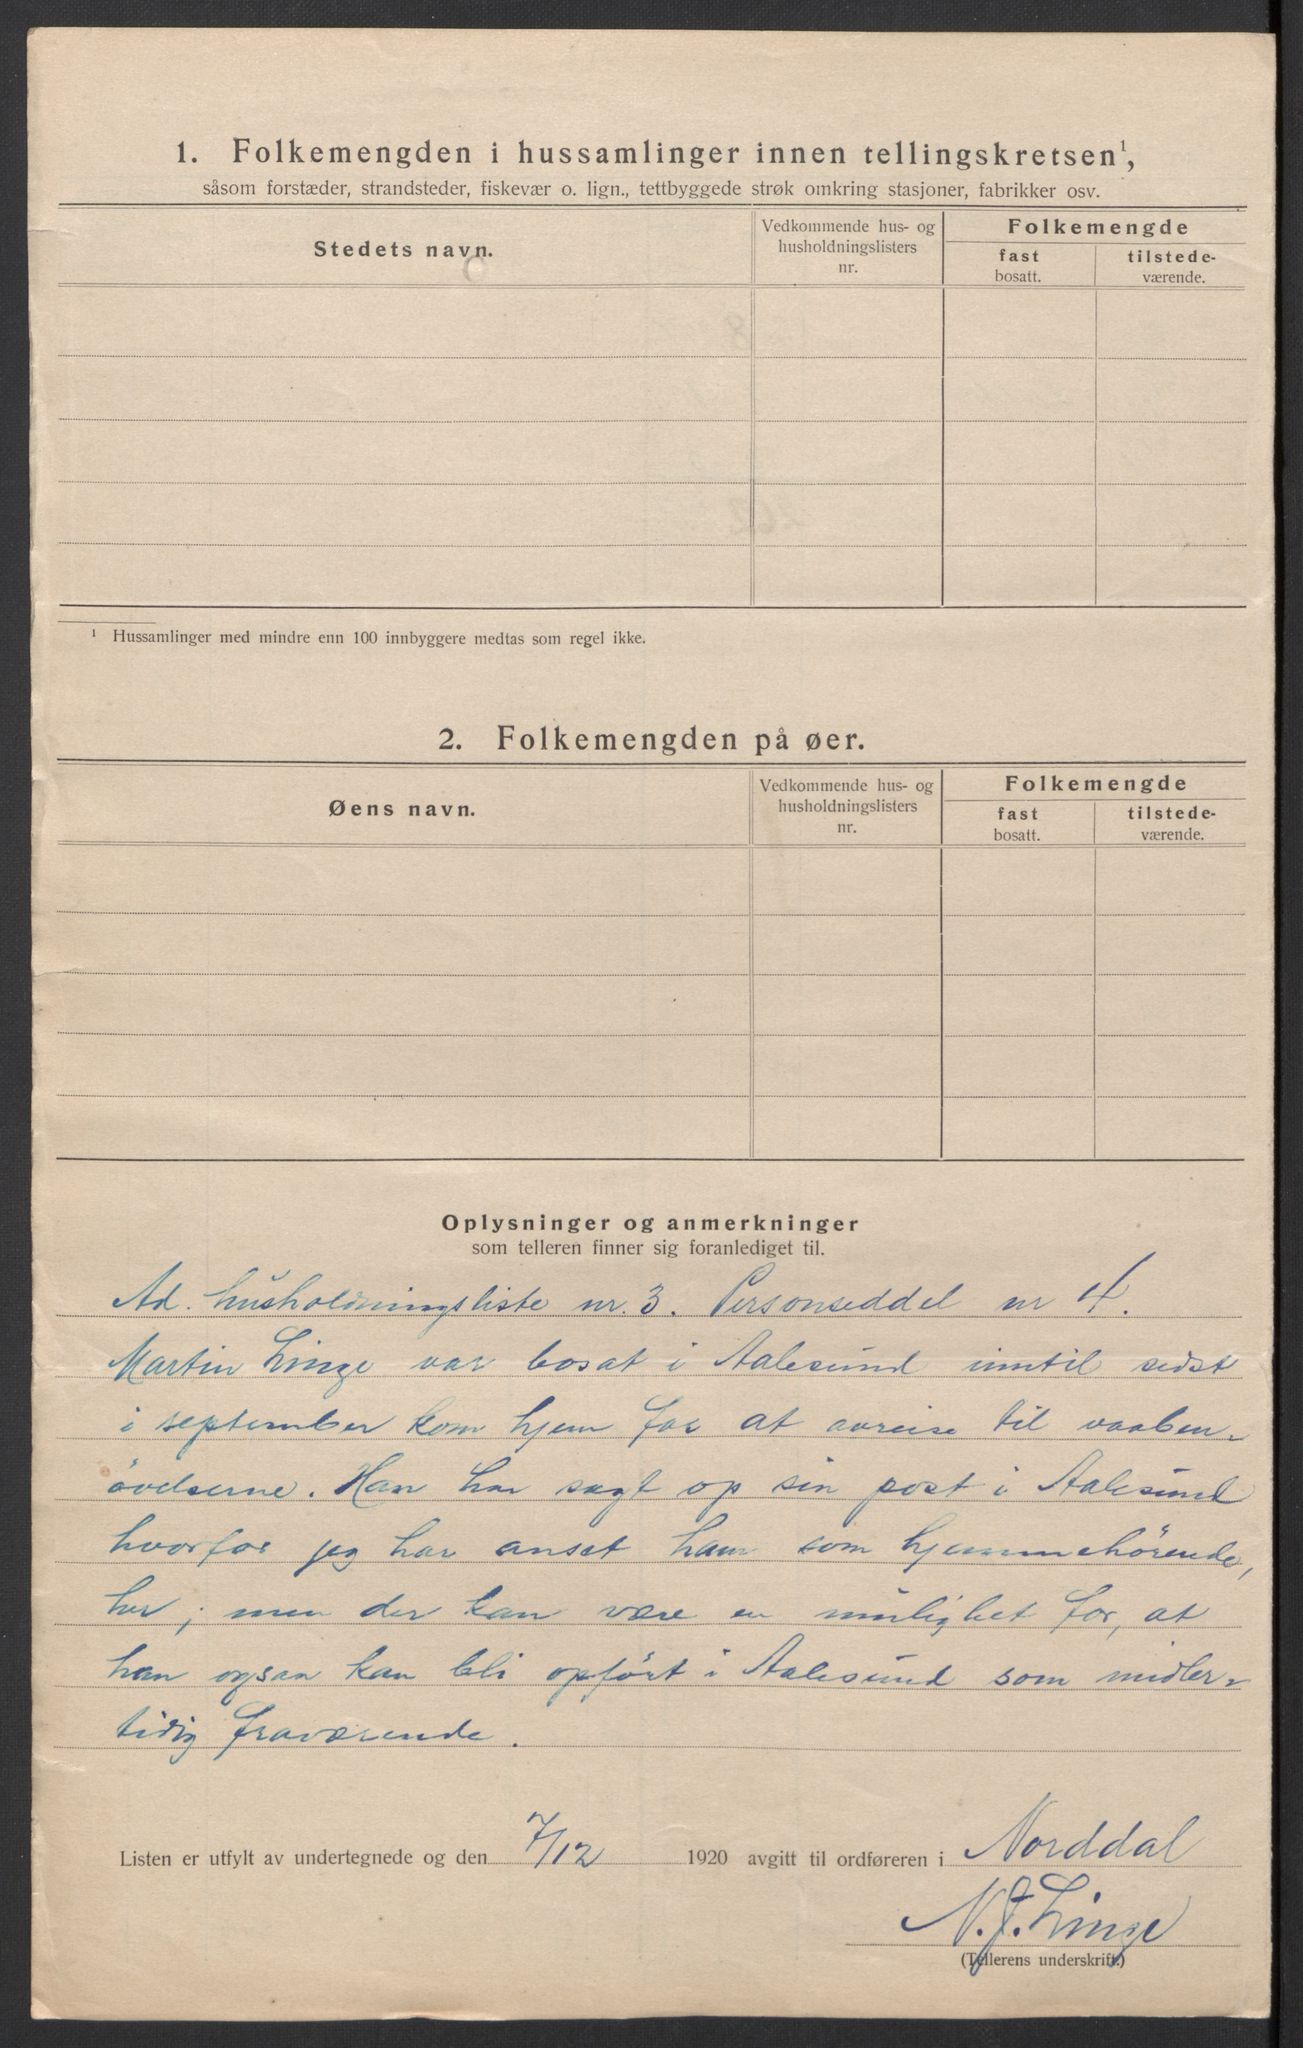 1. Folkemengden i hussamlinger innen tellingskretsen¹,
såsom forstæder, strandsteder, fiskevær o. lign., tettbyggede strøk omkring stasjoner, fabrikker osv.
Stedets navn.
Vedkommende hus- og husholdningslisters nr.
Folkemengde
fast bosatt.
tilstede-værende.
¹ Hussamlinger med mindre enn 100 innbyggere medtas som regel ikke.
2. Folkemengden på øer.
Øens navn.
Vedkommende hus- og husholdningslisters nr.
Folkemengde
fast bosatt.
tilstede-værende.
Oplysninger og anmerkninger
som telleren finner sig foranlediget til.
Ad. husholdningsliste nr. 3. Personseddel nr 4.
Martin Linge var bosat i Aalesund inntil sidst
i september kom hjem for at avreise til vaaben-
övelserne. Han har sagt op sin post i Aalesund
hvorfor jeg har anset ham som hjemmehörende,
her; men der kan være en mulighet for, at
han ogsaa kan bli opfört i Aalesund som midler-
tidig fraværende.
Listen er utfylt av undertegnede og den 7/12 1920 avgitt til ordføreren i Norddal
N. J. Linge
(Tellerens underskrift.)